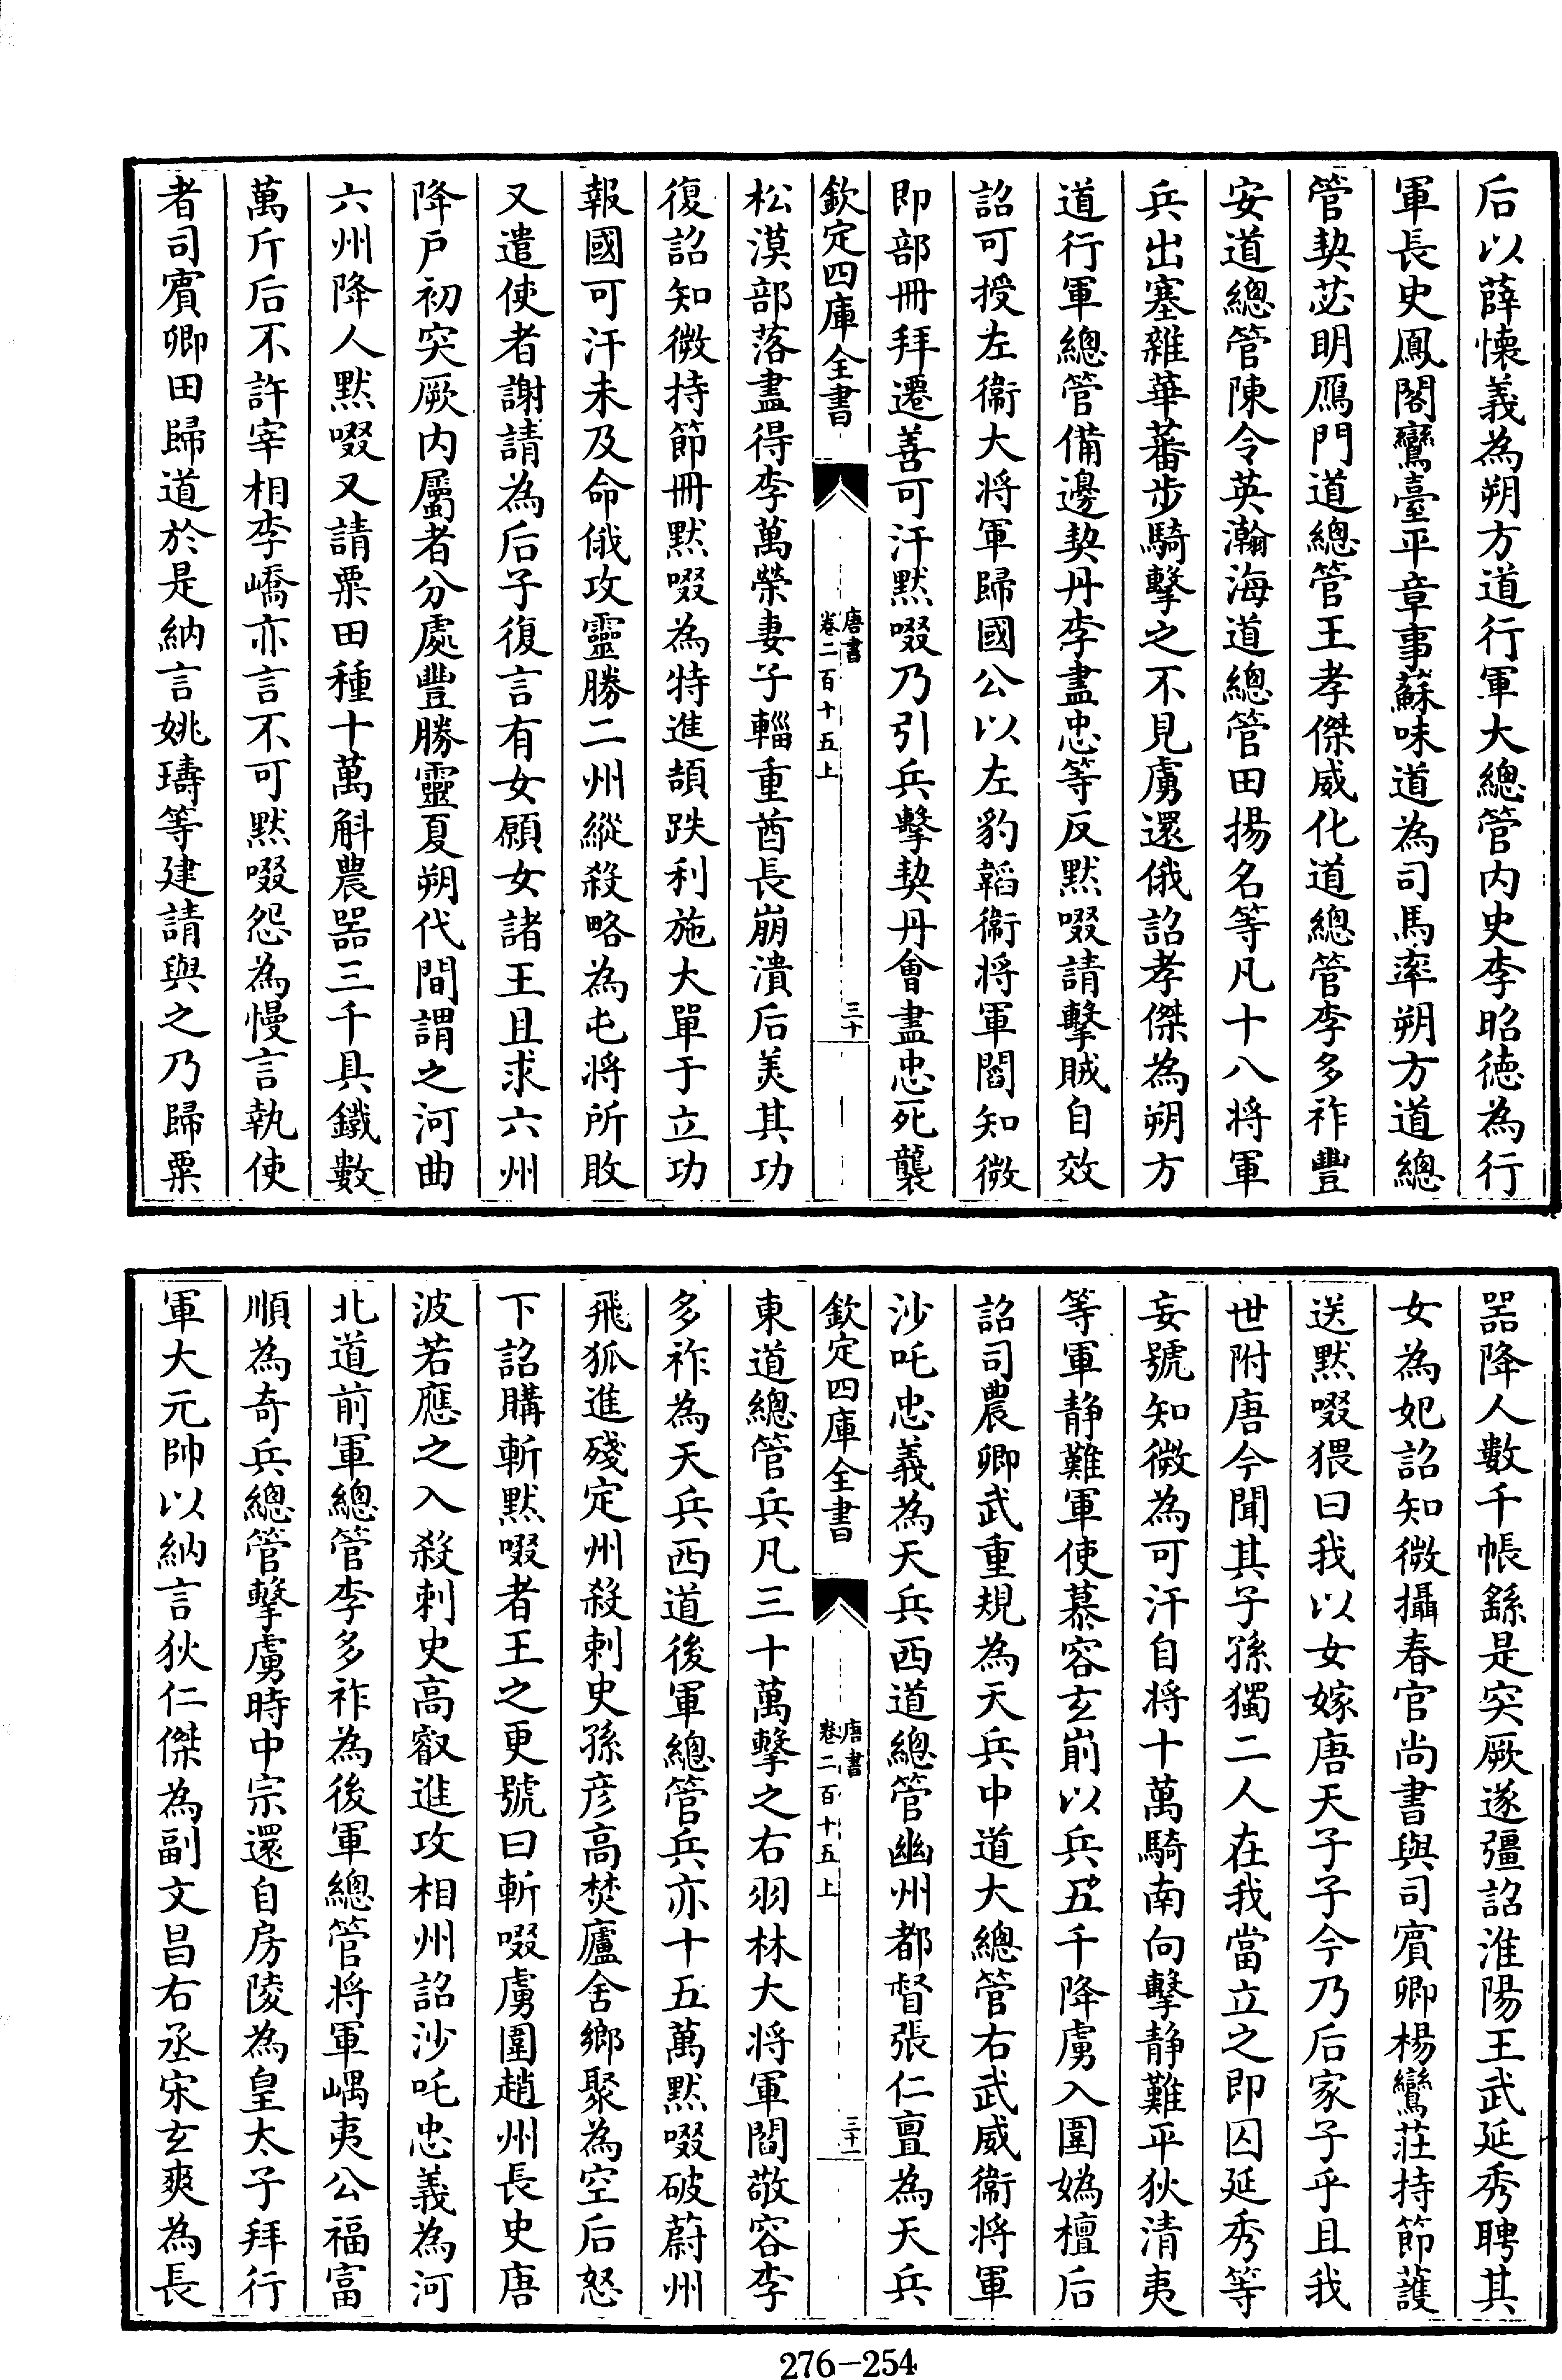 后以薛懷義為朔方道行軍大總管内史李昭徳為行
軍長史鳳閣鸞臺平章事蘇味道為司馬率朔方道總
管契苾明鴈門道總管王孝傑威化道總管李多祚豐
安道總管陳令英瀚海道總管田揚名等凡十八将軍
兵出塞雜華蕃步騎擊之不見虜還俄詔孝傑為朔方
道行軍總管備邊契丹李盡忠等反黙啜請擊賊自效
詔可授左衛大将軍歸國公以左豹韜衛将軍閻知微
即部冊拜遷善可汗黙啜乃引兵擊契丹會盡忠死襲
欽定四庫全書
唐書
卷二百十五上
三十
松漠部落盡得李萬榮妻子輜重酋長崩潰后美其功
復詔知微持節冊黙啜為特進頡跌利施大單于立功
報國可汗未及命俄攻靈勝二州縱殺略為屯将所敗
又遣使者謝請為后子復言有女願女諸王且求六州
降戶初突厥内屬者分處豐勝靈夏朔代間謂之河曲
六州降人黙啜又請粟田種十萬斛農器三千具鐵數
萬斤后不許宰相李嶠亦言不可黙啜怨為慢言執使
者司賓卿田歸道於是納言姚璹等建請與之乃歸粟
器降人數千帳繇是突厥遂彊詔淮陽王武延秀聘其
女為妃詔知微攝春官尚書與司賓卿楊鸞莊持節護
送黙啜猥曰我以女嫁唐天子子今乃后家子乎且我
世附唐今聞其子孫獨二人在我當立之即囚延秀等
妄號知微為可汗自将十萬騎南向擊静難平狄清夷
等軍静難軍使慕容玄崱以兵五千降虜入圍媯檀后
詔司農卿武重規為天兵中道大總管右武威衛将軍
沙吒忠義為天兵西道總管幽州都督張仁亶為天兵
欽定四庫全書
唐書
卷二百十五上
三十一
東道總管兵凡三十萬擊之右羽林大将軍閻敬容李
多祚為天兵西道後軍總管兵亦十五萬黙啜破蔚州
飛狐進殘定州殺刺史孫彦高焚廬舍鄉聚為空后怒
下詔購斬黙啜者王之更號曰斬啜虜圍趙州長史唐
波若應之入殺刺史高叡進攻相州詔沙吒忠義為河
北道前軍總管李多祚為後軍總管将軍嵎夷公福富
順為奇兵總管擊虜時中宗還自房陵為皇太子拜行
軍大元帥以納言狄仁傑為副文昌右丞宋玄爽為長
276-254